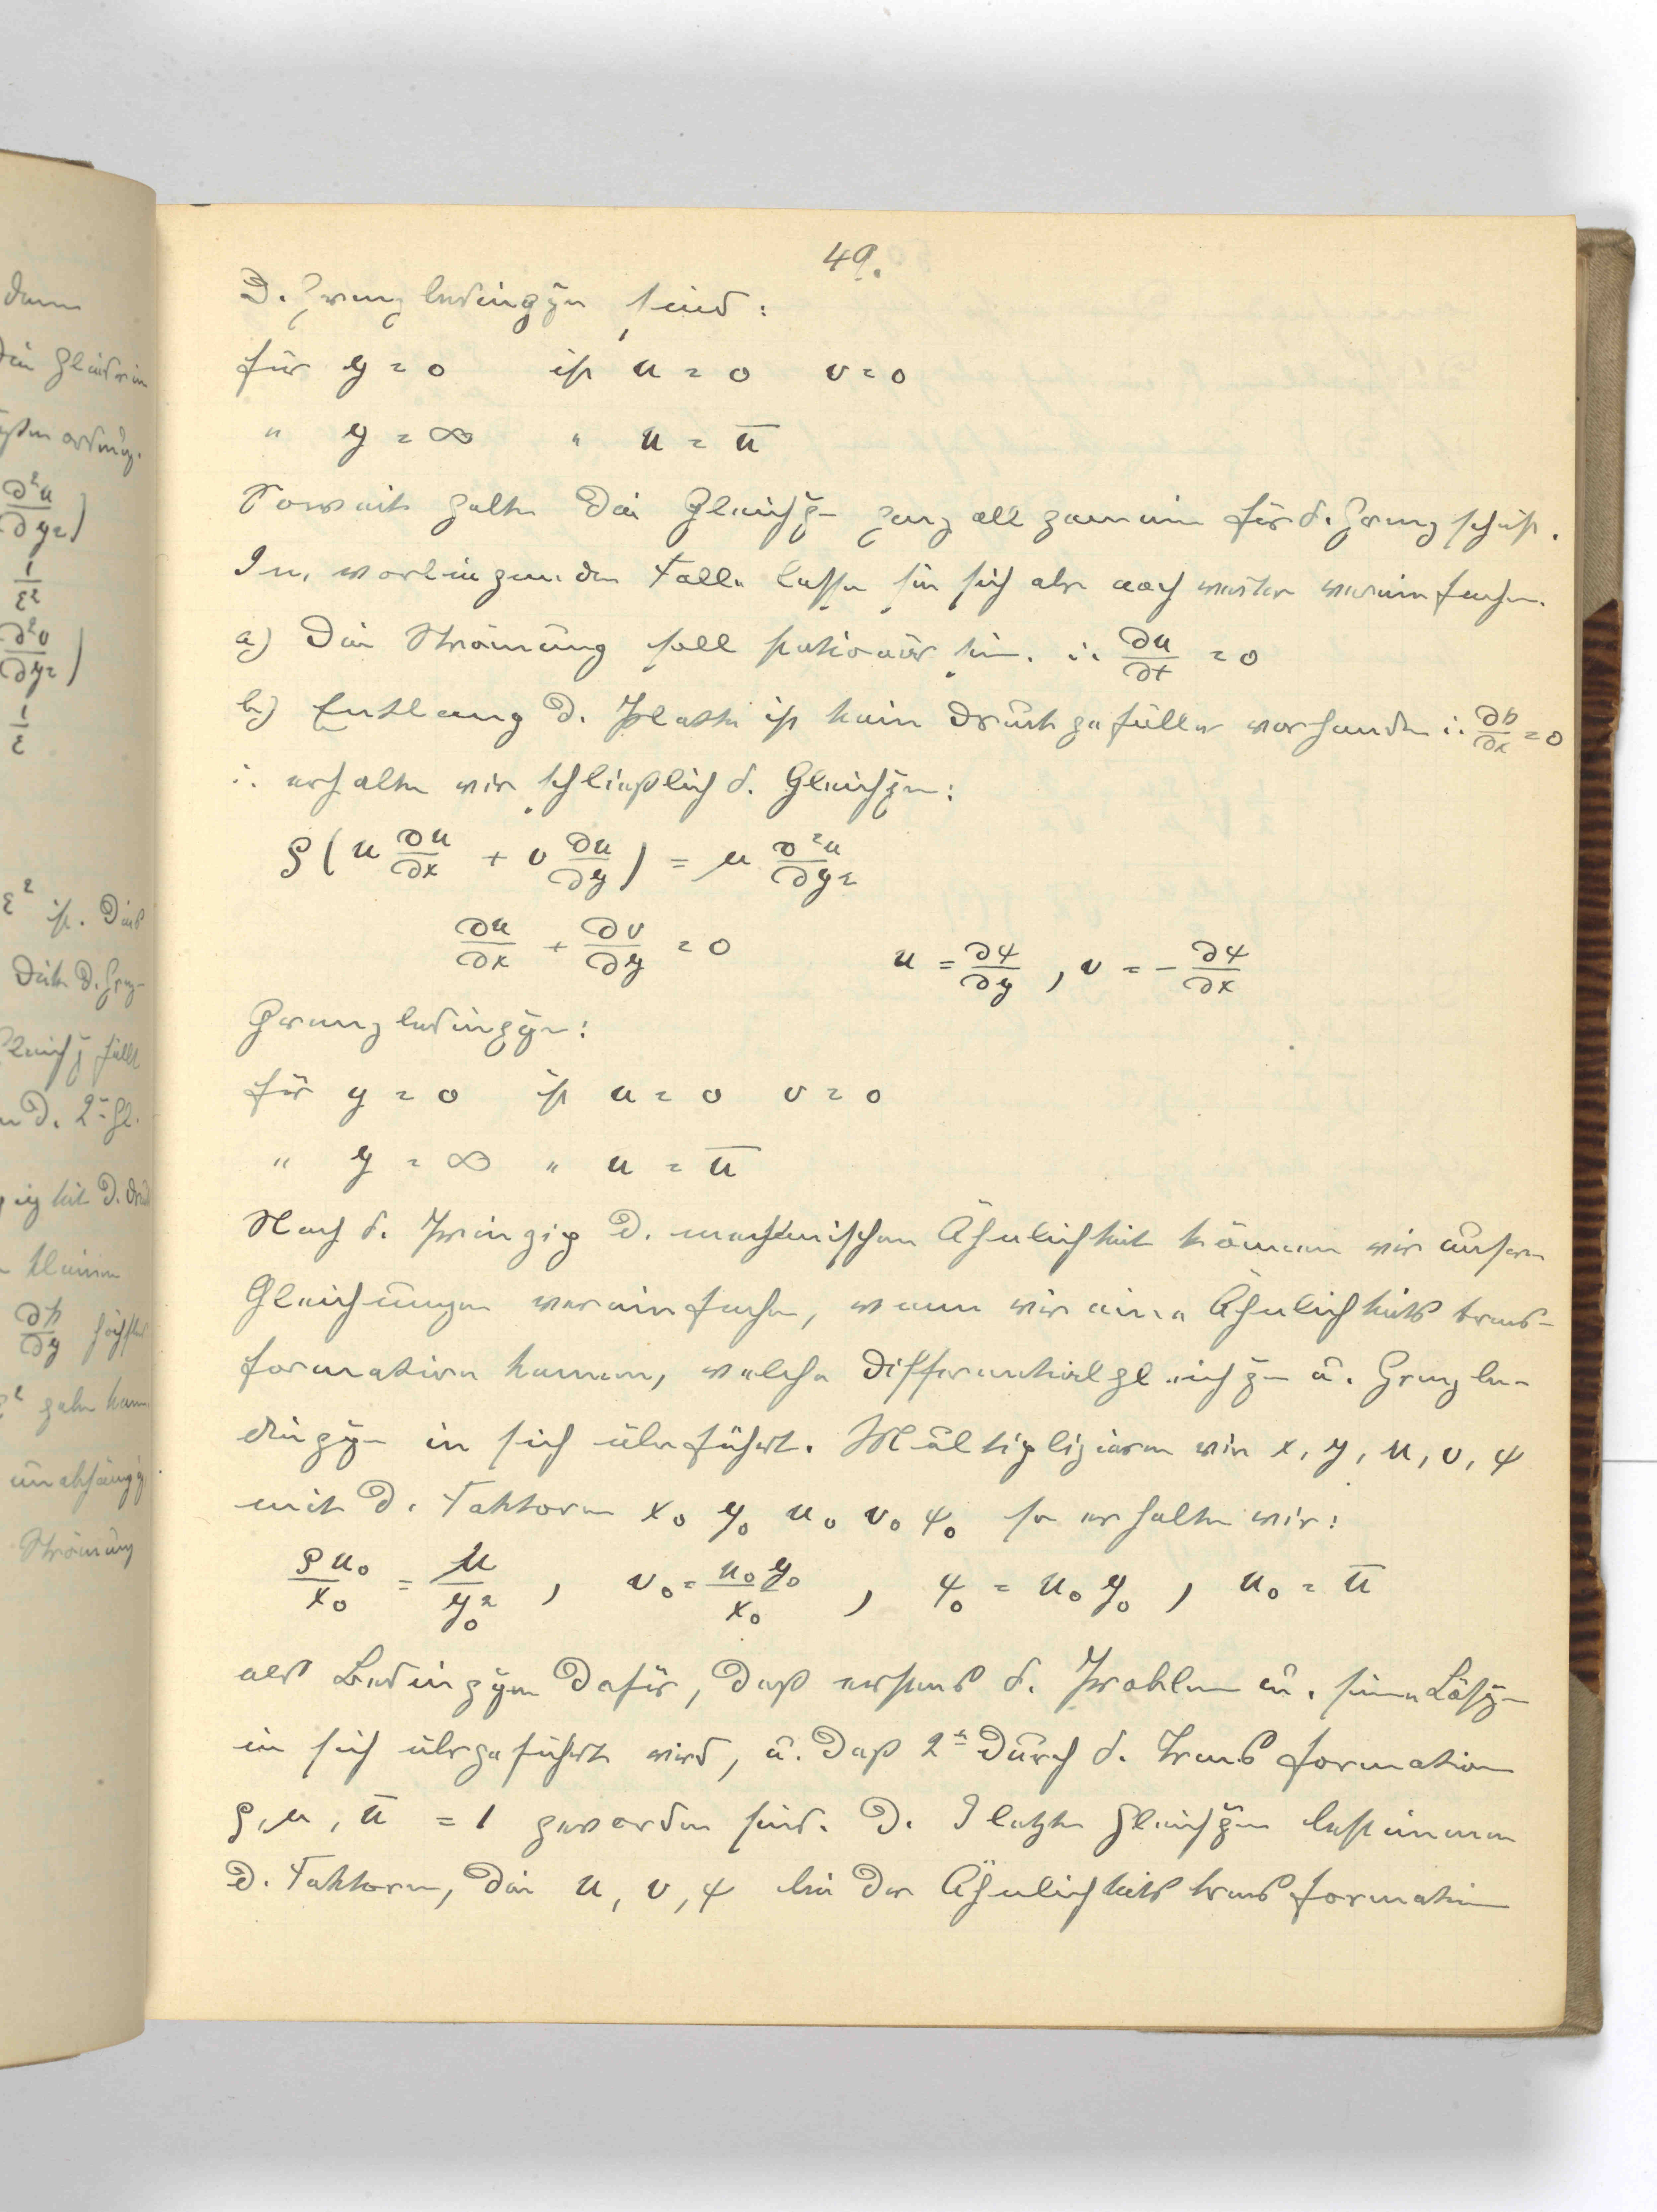 49.
D. Grenzbedingg̅n sind:
für y = 0 ist u = 0 v = 0
" y = ∞ " u = u̅
Soweit gelten die Gleichg̅n ganz allgemein für d. Grenzschicht.
Im vorliegenden Falle lassen sie sich aber noch weiter vereinfachen.
a) Die Strömung soll stationär sein. ∴ ∂u/∂t = 0
b) Entlang d. Platte ist kein Druckgefälle vorhanden ∴ ∂p/∂x = 0
∴ erhalten wir schließlich d. Gleichg̅n:
ρ(u ∂u/∂x + v ∂u/∂y) = μ ∂²u/∂y²
∂u/∂x + ∂v/∂y = 0 u = ∂ψ/∂y, v = - ∂ψ/∂x
Grenzbedingg̅n:
für y = 0 ist u = 0 v = 0
" y = ∞ " u = u̅
Nach d. Prinzip d. mechanischen Ähnlichkeit können wir unsere
Gleichungen vereinfachen, wenn wir eine Ähnlichkeitstrans-
formation kennen, welche Differentialgleichg̅n u. Grenzbe-
dingg̅n in sich überführt. Multiplizieren wir x, y, u, v, ψ
mit d. Faktoren x₀ y₀ u₀ v₀ ψ₀ so erhalten wir:
ρu₀/x₀ = μ/y₀², v₀ = u₀y₀/x₀, ψ₀ = u₀ y₀, u₀ = u̅
als Bedingg̅n dafür, daß erstens d. Problem u. seine Lösg̅n
in sich übergeführt wird, u. daß 2ᵗ durch d. Transformation
ρ, μ, u̅ = 1 geworden sind. D. 3 letzten Gleichg̅n bestimmen
d. Faktoren, die u, v, ψ bei der Ähnlichkeitstransformation
dann
die Glieder in
ordnung.
∂²u/∂y²)
1/ε²
∂²v/∂y²)
1/ε
ε² ist. Dies
d. Grenz-
fällt
d. 2ᵗ Gl.
kleinen
∂p/∂y höchstens
ε² gehen kann
unabhängig
Strömung